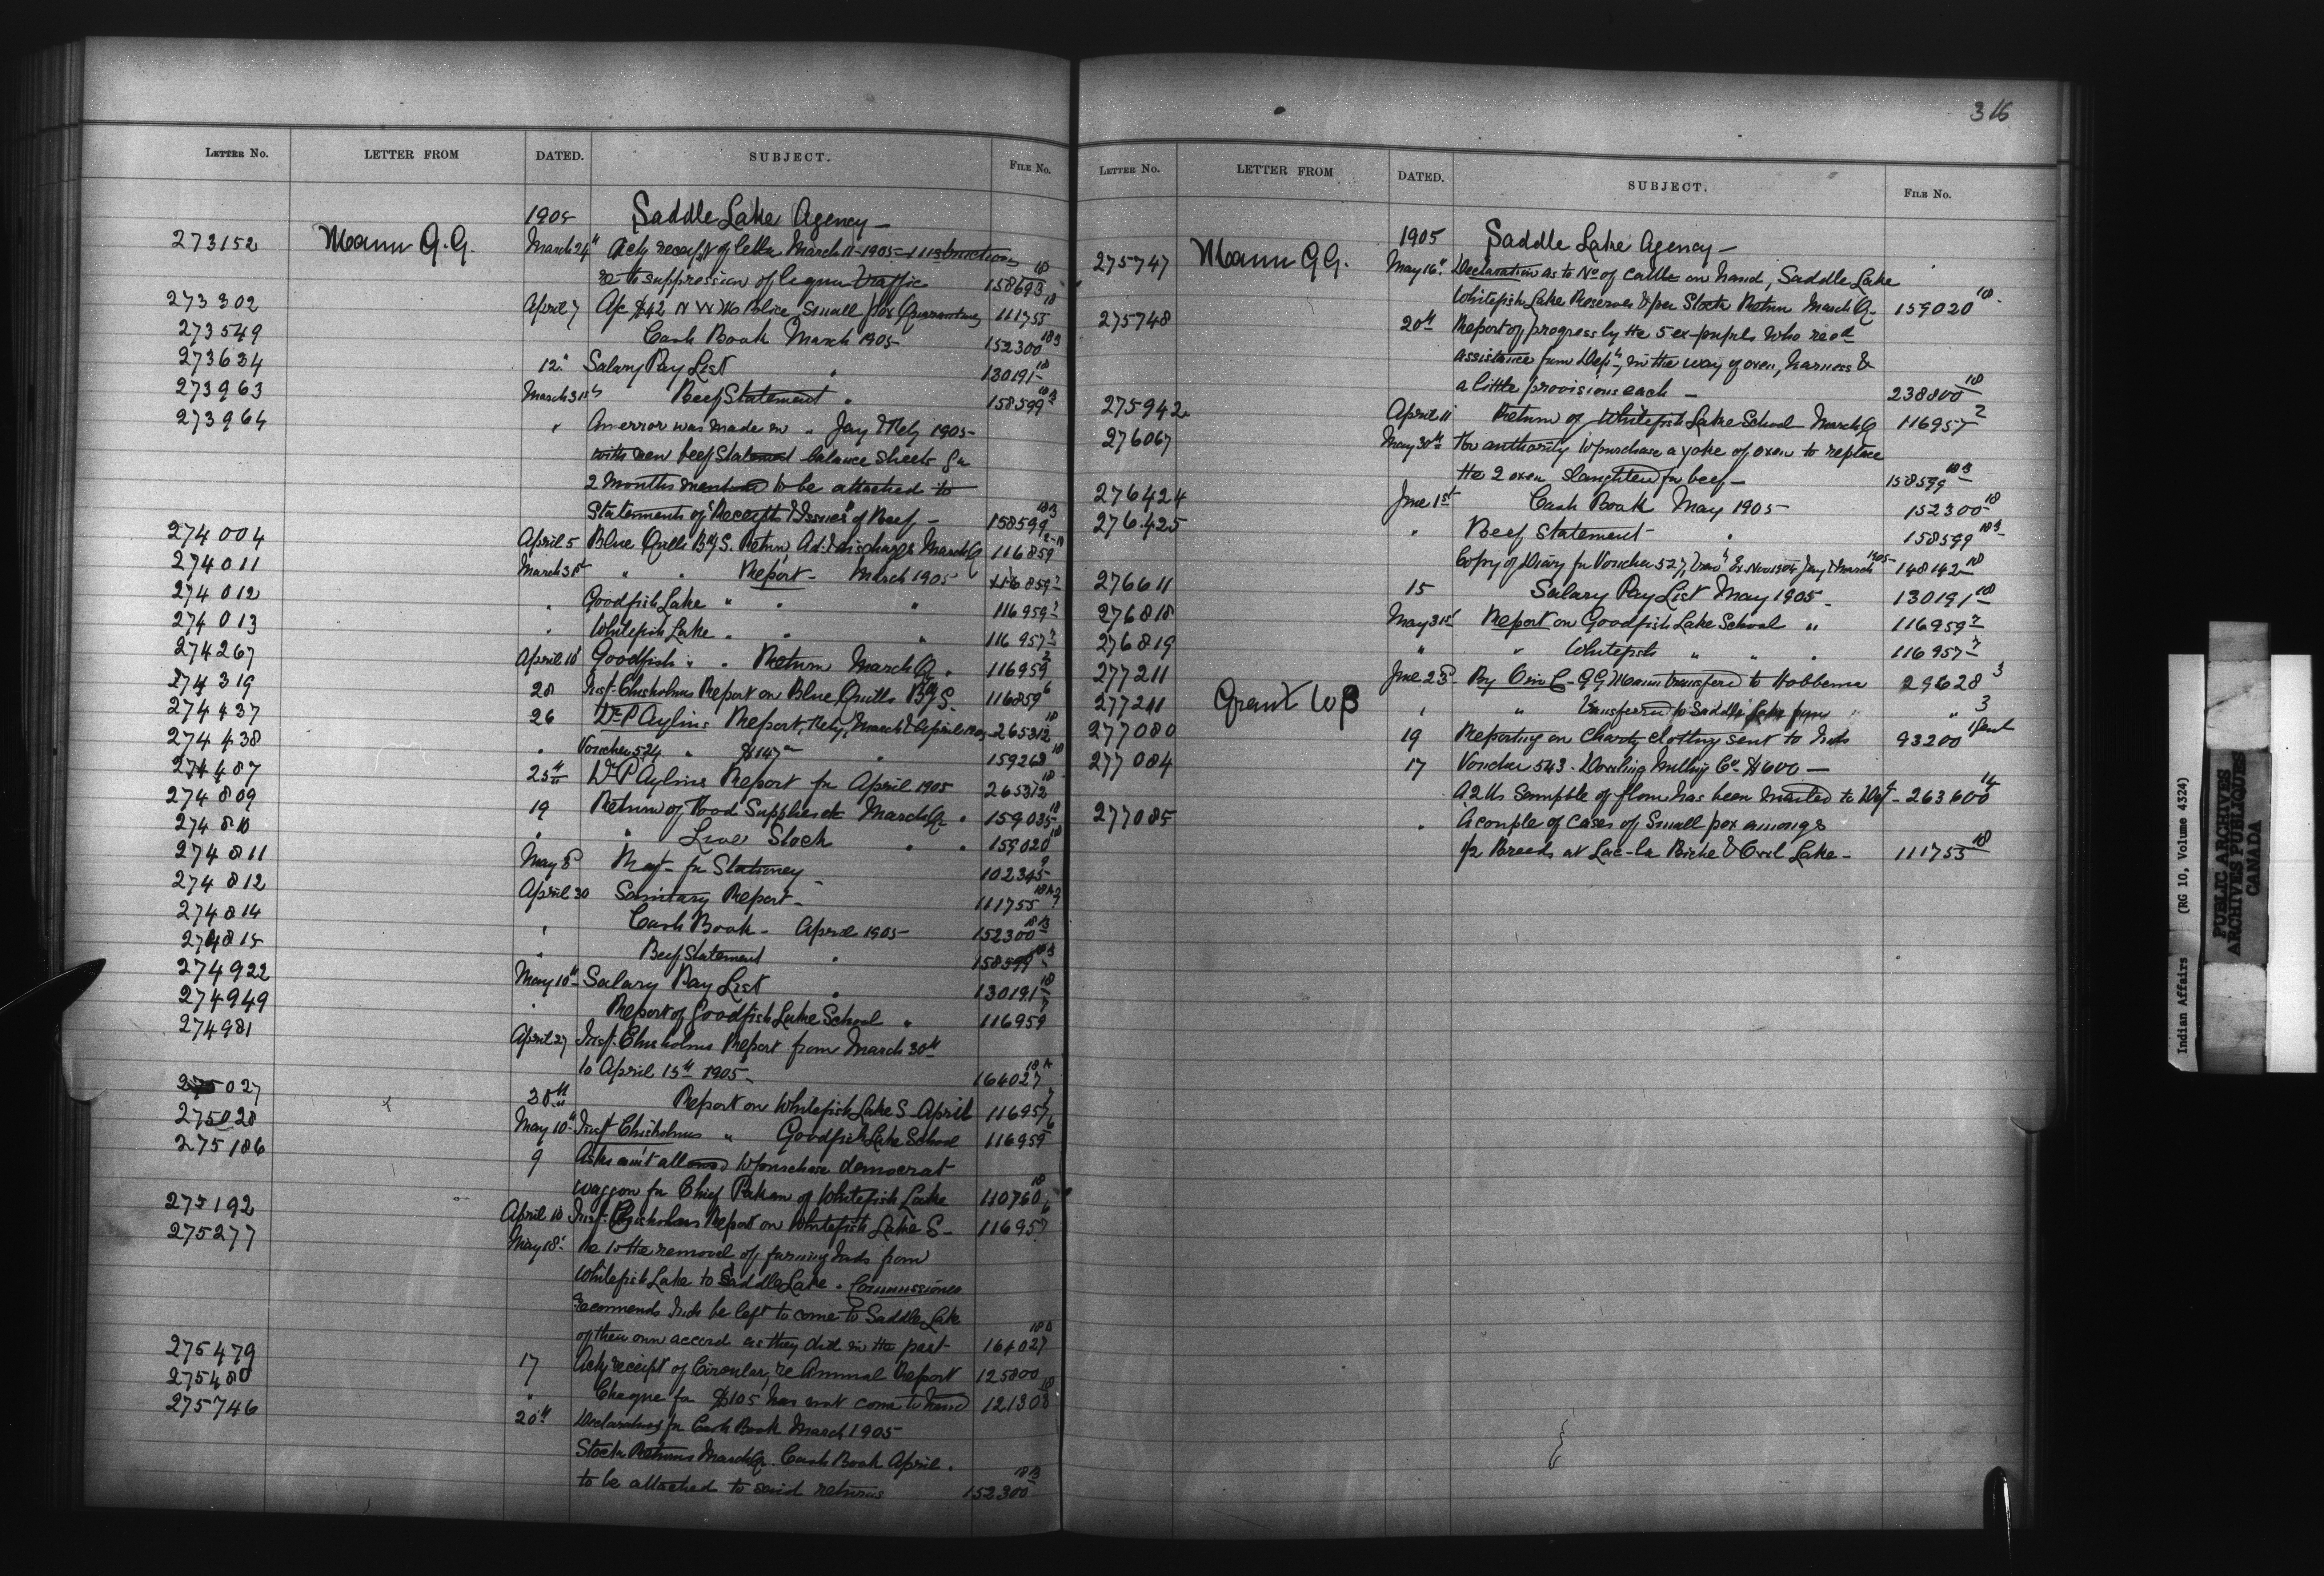 316
LETTER NO. LETTER FROM DATED. SUBJECT. FILE NO.
1905 Saddle Lake Agency –
273152 Mann G.G. March 24th Ack receipt of letter March 11-1905 – instructions
re to suppression of liquor traffic 158693 18
273302 April 7 A/c $42 N W M Police Small pox Quarantine 111755 18
273549 Cash Book March 1905 152300 18 3
273634 12" Salary Pay List " 130191 18
273963 March 31st Beef Statement " 158599 18 3
273964 " An error was made in " Jany & Feby 1905
with new beef Statement balance sheets for
2 months mentioned to be attached to
Statements of "Receipts & Issues" of Beef – 158599 18 3
274004 April 5 Blue Quills B'd'g S. Return Ad. & discharges March Q 116859 2-18
274011 March 31st " " Report – March 1905 116859 7
274012 " Goodfish Lake " " " 116959 7
274013 " Whitefish Lake " " " 116957 7
274267 April 10 Goodfish " " Return March Q. 116959 2
274319 28 Inst. Chisholms Report on Blue Quills B'd'g S. 116859 6
274437 26 Dr P Aylins Report, Feby, March & April 1905 265312 18
274438 " Voucher 524 " $147 " 159268 18
274487 25th Dr P Aylins Report for April 1905 265312 18
274809 19 Return of Food Supplies etc March Q " 159035 18
274810 " " Live Stock " " 159020 18
274811 May 8 Req– for Stationery – 102345 9
274812 April 30 Sanitary Report – 111755
274814 " Cash Book – April 1905 152300 18 B
274815 " Beef Statement " 158599 18 3
274922 May 10th Salary Pay List " 130191 18
274949 " Report of Goodfish Lake School " 116959 7
274981 April 27 Insp. Chisholms Report from March 30th
to April 15th 1905 – 164027 18
275027 30th Report on Whitefish Lake S – April 116957 7
275028 May 10th Insp. Chisholms " Goodfish Lake School 116959 6
275186 9 Asks am't allowed to purchase democrat
waggon for Chief Pakan of Whitefish Lake 110760 18
275192 April 10 Insp. Chisholms Report on Whitefish Lake S – 116957 6
275277 May 18" Re to the removal of farming Inds from
Whitefish Lake to Saddle Lake. Commissioner
recommends Inds be left to come to Saddle Lake
of their own accord as they did in the past – 164027 18
275479 17 Ack receipt of Circular, re Annual Report 125800
275480 " Cheque for $105 has not come to hand 121308 18
275746 20th Declarations for Cash Book March 1905
Stock Returns March Q. Cash Book April.
to be attached to said returns 152300 18 B
LETTER NO. LETTER FROM DATED. SUBJECT. FILE NO.
1905 Saddle Lake Agency –
275747 Mann GG. May 16" Declaration as to No of cattle on hand, Saddle Lake
Whitefish Lake Reserves & per Stock Return March Q – 159020 18
275748 20th Report of progress by the 5 ex-pupils who recd
assistance from Dept, in the way of oxen, harness &
a little provisions each – 238800 18
275942 April 11 Return of Whitefish Lake School March Q 116957 2
276067 May 30th For authority to purchase a yoke of oxen to replace
the 2 oxen slaughtered for beef – 158599 18 B
276424 June 1st Cash Book May 1905 – 152300 18
276425 " Beef Statement – " 158599 18 3
Copy of Diary for Voucher 527, Nov 1904 Jany & March 1905 – 148142 18
276611 15 Salary Pay List May 1905 – 130191 18
276818 May 31st Report on Goodfish Lake School " 116959 7
276819 " " Whitefish " " " 116957 7
277211 June 23d By Oin C – GG Mann transferd to Hobbema 29628 3
277211 Grant WB " " transferred to Saddle Lake from " " 3
277080 19 Reporting on Charity clothing sent to Inds 93200
277084 17 Voucher 543. Dowling Milling Co. $600 –
A 2 lb Sample of flour has been mailed to Dept – 263600 14
277085 " A couple of cases of Small pox amongs
1/2 Breeds at Lac-la Biche & Owl Lake – 111755 18
Indian Affairs (RG 10, Volume 4324)
PUBLIC ARCHIVES
ARCHIVES PUBLIQUES
CANADA